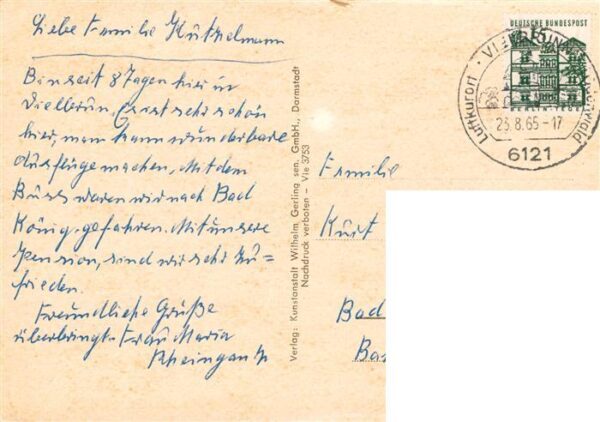 Liebe Familie Kützelmann
Bin seit 8 Tagen hier in
Vielbrun. Es ist sehr schön
hier, man kann wunderbare
Ausflüge machen. Mit dem
Buss waren wir nach Bad
König gefahren. Mit unsere
Pension, sind wir sehr zu=
frieden.
Freundliche Grüße
überbringt Frau Maria
Rheingans
Verlag: Kunstanstalt Wilhelm Gerling sen. GmbH., Darmstadt
Nachdruck verboten - Vie 3753
DEUTSCHE BUNDESPOST
Luftkurort
23.8.65-17
6121
Familie
Kurt
Bad